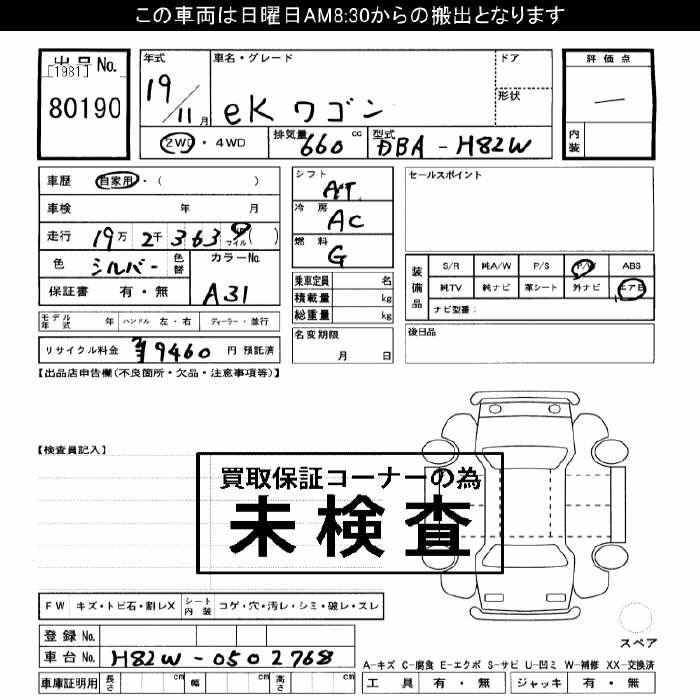 この車両は日曜日AM8:30からの搬出となります
出品No.
[1981]
80190
年式
19/11月
車名・グレード
eK ワゴン
ドア
形状
評価点
―
内装
2WD・4WD
排気量 660 cc
型式 DBA-H82W
車歴 自家用・( )
車検 年 月
走行 19万 2千 3639 マイル( )
色 シルバー 色替
カラーNo.
A31
保証書 有・無
シフト
AT
冷房
AC
燃料
G
乗車定員 名
積載量 kg
総重量 kg
セールスポイント
装備品
S/R 純A/W P/S P/W ABS
純TV 純ナビ 革シート 外ナビ エアB
ナビ型番:
モデル年式 年 ハンドル 左・右 ディーラー・並行
名変期限
月 日
後日品
リサイクル料金 ¥9460 円 預託済
【出品店申告欄(不良箇所・欠品・注意事項等)】
【検査員記入】
買取保証コーナーの為
未検査
FW キズ・トビ石・割レX シート内装 コゲ・穴・汚レ・シミ・破レ・スレ
登録No.
車台No. H82W-0502768
車庫証明用 長さ cm 幅 cm 高さ cm
スペア
A-キズ C-腐食 E-エクボ S-サビ U-凹ミ W-補修 XX-交換済
工具 有・無 ジャッキ 有・無